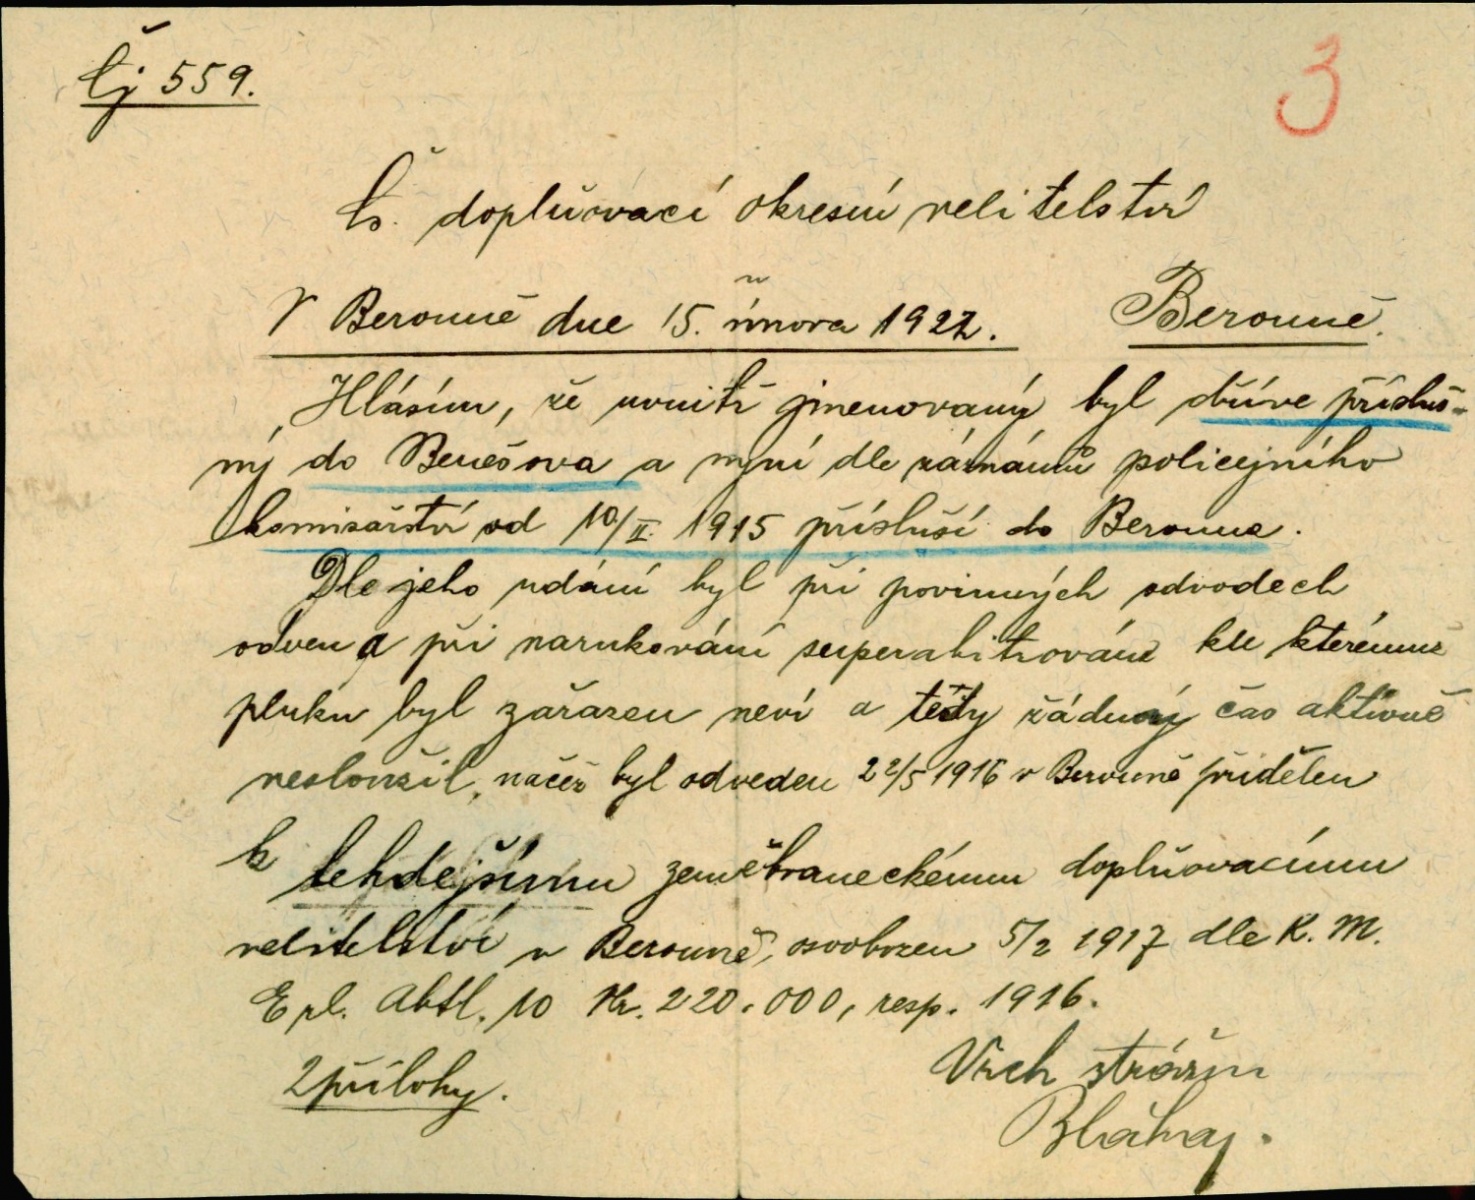 Čj 559.
3
Čs. doplňovací okresní velitelství
V Berouně dne 15. února 1922. Berouně.
Hlásím, že uvnitř jmenovaný byl dříve přísluš-
ný do Benešova a nyní dle záznamů policejního
komisařství od 10/II. 1915 přísluší do Berouna.
Dle jeho udání byl při povinných odvodech
odven a při narukování superabitrován ku kterémuž
pluku byl zařazen neví a tedy řádný čas aktivně
nesloužil, načež byl odveden 22/5 1916 v Berouně přidělen
k tehdejšímu zeměbraneckému doplňovacímu
velitelství v Berouně, osvobozen 5/2 1917 dle K. M.
Erl. Abtl. 10 Nr. 220.000, resp. 1916.
2 přílohy.
Vrch strážm
Bláhay.